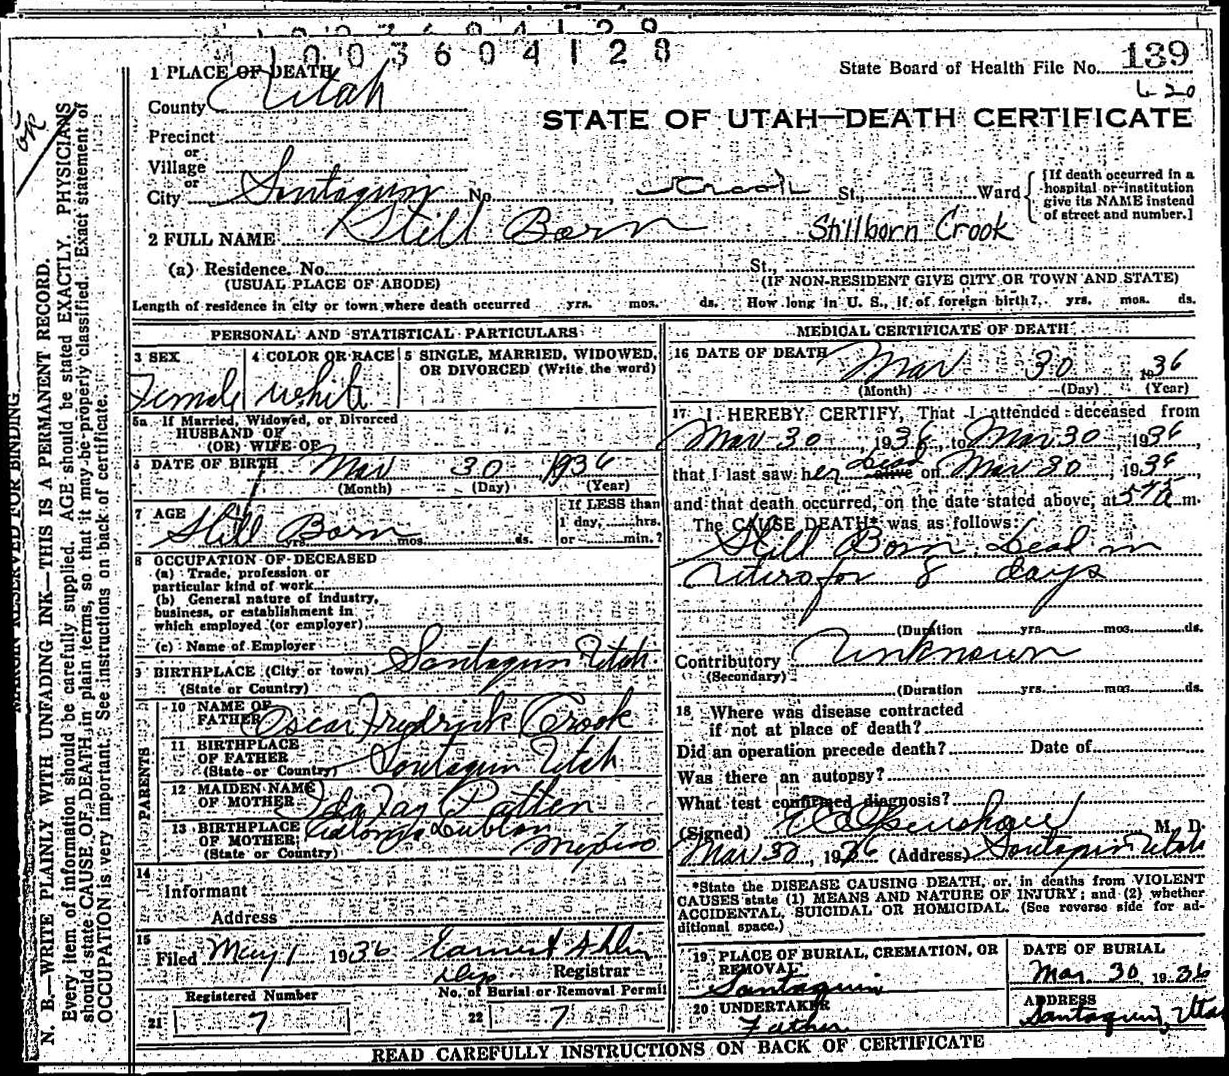 1003604128
State Board of Health File No. 139
620
1 PLACE OF DEATH
County Utah
STATE OF UTAH—DEATH CERTIFICATE
Precinct
or
Village
or
City Santaquin No. Crook St., Ward
[If death occurred in a hospital or institution give its NAME instead of street and number.]
2 FULL NAME Still Born Stillborn Crook
(a) Residence. No. St.,
(USUAL PLACE OF ABODE) (IF NON-RESIDENT GIVE CITY OR TOWN AND STATE)
Length of residence in city or town where death occurred yrs. mos. ds. How long in U. S., if of foreign birth? yrs. mos. ds.
PERSONAL AND STATISTICAL PARTICULARS
3 SEX Female
4 COLOR OR RACE white
5 SINGLE, MARRIED, WIDOWED, OR DIVORCED (Write the word)
5a If Married, Widowed, or Divorced
HUSBAND OF
(OR) WIFE OF
6 DATE OF BIRTH Mar 30 1936
(Month) (Day) (Year)
7 AGE Still Born
yrs. mos. ds.
If LESS than
1 day, hrs.
or min.?
8 OCCUPATION OF DECEASED
(a) Trade, profession or
particular kind of work
(b) General nature of industry,
business, or establishment in
which employed (or employer)
(c) Name of Employer
9 BIRTHPLACE (City or town) Santaquin Utah
(State or Country)
PARENTS
10 NAME OF
FATHER Oscar Fredrick Crook
11 BIRTHPLACE
OF FATHER Santaquin Utah
(State or Country)
12 MAIDEN NAME
OF MOTHER Ida Fay Patten
13 BIRTHPLACE
OF MOTHER Colonia Dublan
(State or Country) Mexico
14
Informant
Address
15
Filed May 1 1936 Earnest Ahlin
Dep Registrar
Registered Number No. of Burial or Removal Permit
21 7 22 7
MEDICAL CERTIFICATE OF DEATH
16 DATE OF DEATH Mar 30 1936
(Month) (Day) (Year)
17 I HEREBY CERTIFY, That I attended deceased from
Mar 30 1936, to Mar 30 1936,
that I last saw her Dead alive on Mar 30, 1936
and that death occurred, on the date stated above, at m.
The CAUSE DEATH* was as follows:
Still Born. Dead in
utero for 8 days
(Duration yrs. mos. ds.
Contributory Unknown
(Secondary)
(Duration yrs. mos. ds.
18 Where was disease contracted
if not at place of death?
Did an operation precede death? Date of
Was there an autopsy?
What test confirmed diagnosis?
(Signed) M. D.
Mar 30, 1936 (Address) Santaquin Utah
*State the DISEASE CAUSING DEATH, or, in deaths from VIOLENT
CAUSES state (1) MEANS AND NATURE OF INJURY; and (2) whether
ACCIDENTAL, SUICIDAL OR HOMICIDAL. (See reverse side for ad-
ditional space.)
19 PLACE OF BURIAL, CREMATION, OR
REMOVAL
Santaquin
DATE OF BURIAL
Mar. 30 1936
20 UNDERTAKER
Father
ADDRESS
Santaquin, Utah
READ CAREFULLY INSTRUCTIONS ON BACK OF CERTIFICATE
MARGIN RESERVED FOR BINDING
N. B.—WRITE PLAINLY WITH UNFADING INK—THIS IS A PERMANENT RECORD.
Every item of information should be carefully supplied. AGE should be stated EXACTLY. PHYSICIANS
should state CAUSE OF DEATH in plain terms, so that it may be properly classified. Exact statement of
OCCUPATION is very important. See instructions on back of certificate.